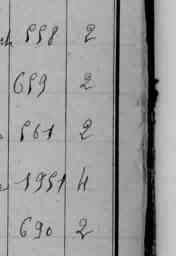 558 2
659 2
561 2
1951 4
690 2